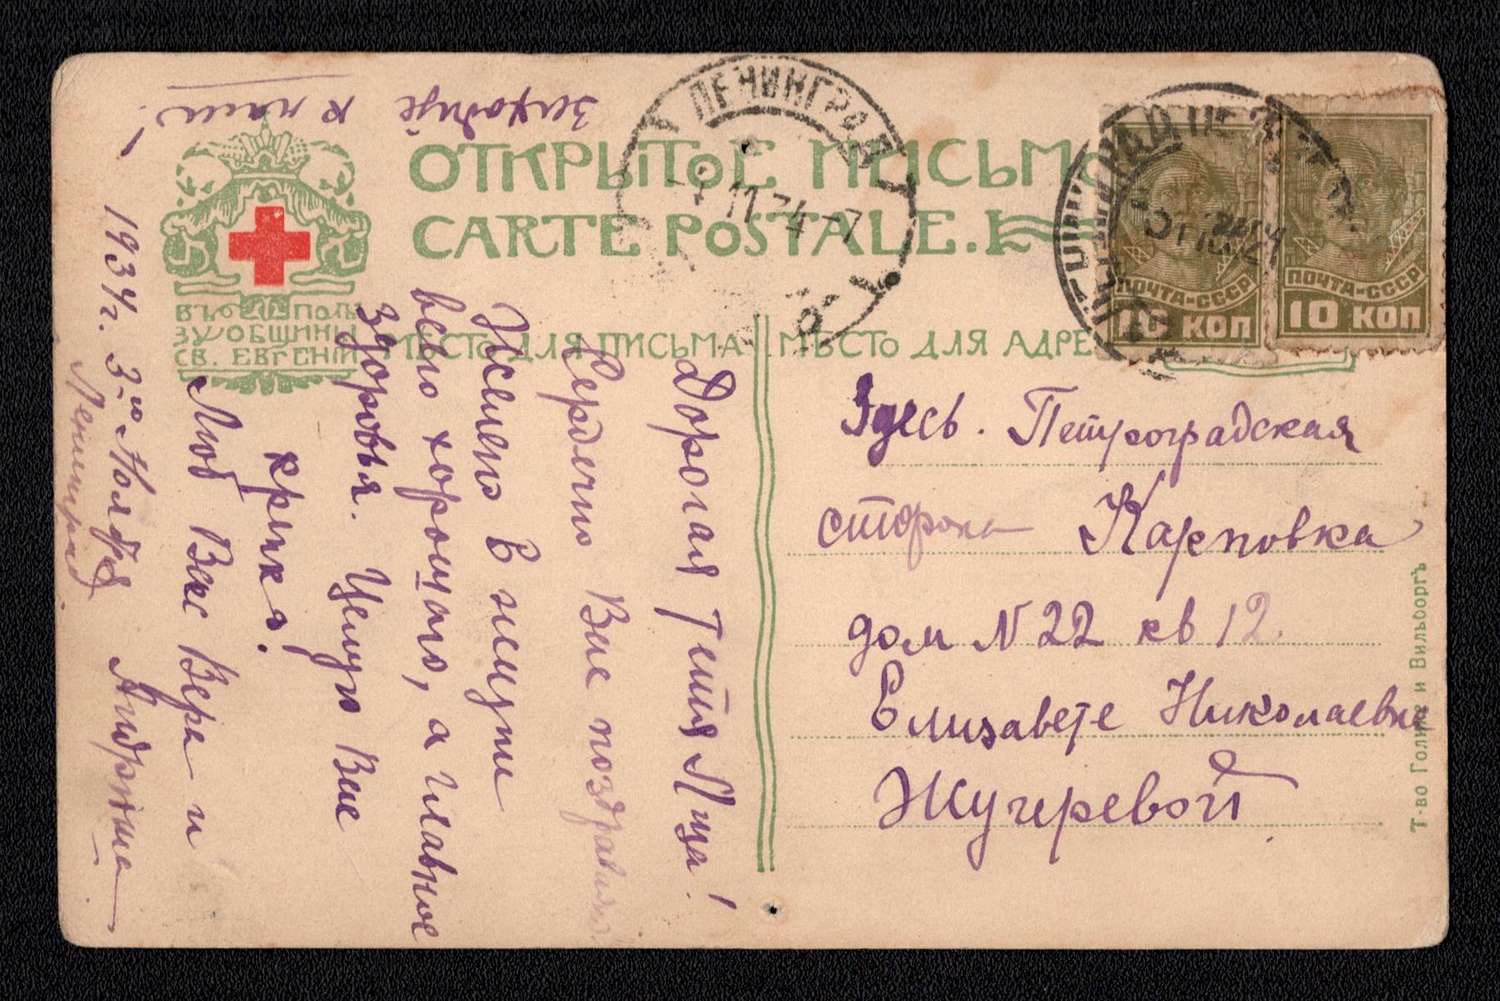 ОТКРЫТОЕ ПИСЬМО
CARTE POSTALE.
ВЪ ПОЛЬ
ЗУ ОБЩИНЫ
СВ. ЕВГЕНIИ
МѢСТО ДЛЯ ПИСЬМА
МѢСТО ДЛЯ АДРЕ
ЛЕНИНГРАД
11 34
ПОЧТА-СССР
10 КОП
ПОЧТА-СССР
10 КОП
Здесь. Петроградская
сторона Карповка
дом N 22 кв 12.
Елизавете Николаевне
Жугеревой
Т-во Голике и Вильборгъ
Дорогая Тетя Лиза!
Сердечно Вас поздравляем.
Желаю в жизни
всего хорошего, а главное
здоровья. Целую Вас
крепко!
Люб Вас Вера и
Андрюша
1934г. 3-го Ноября
Ленинград
заходите к нам!